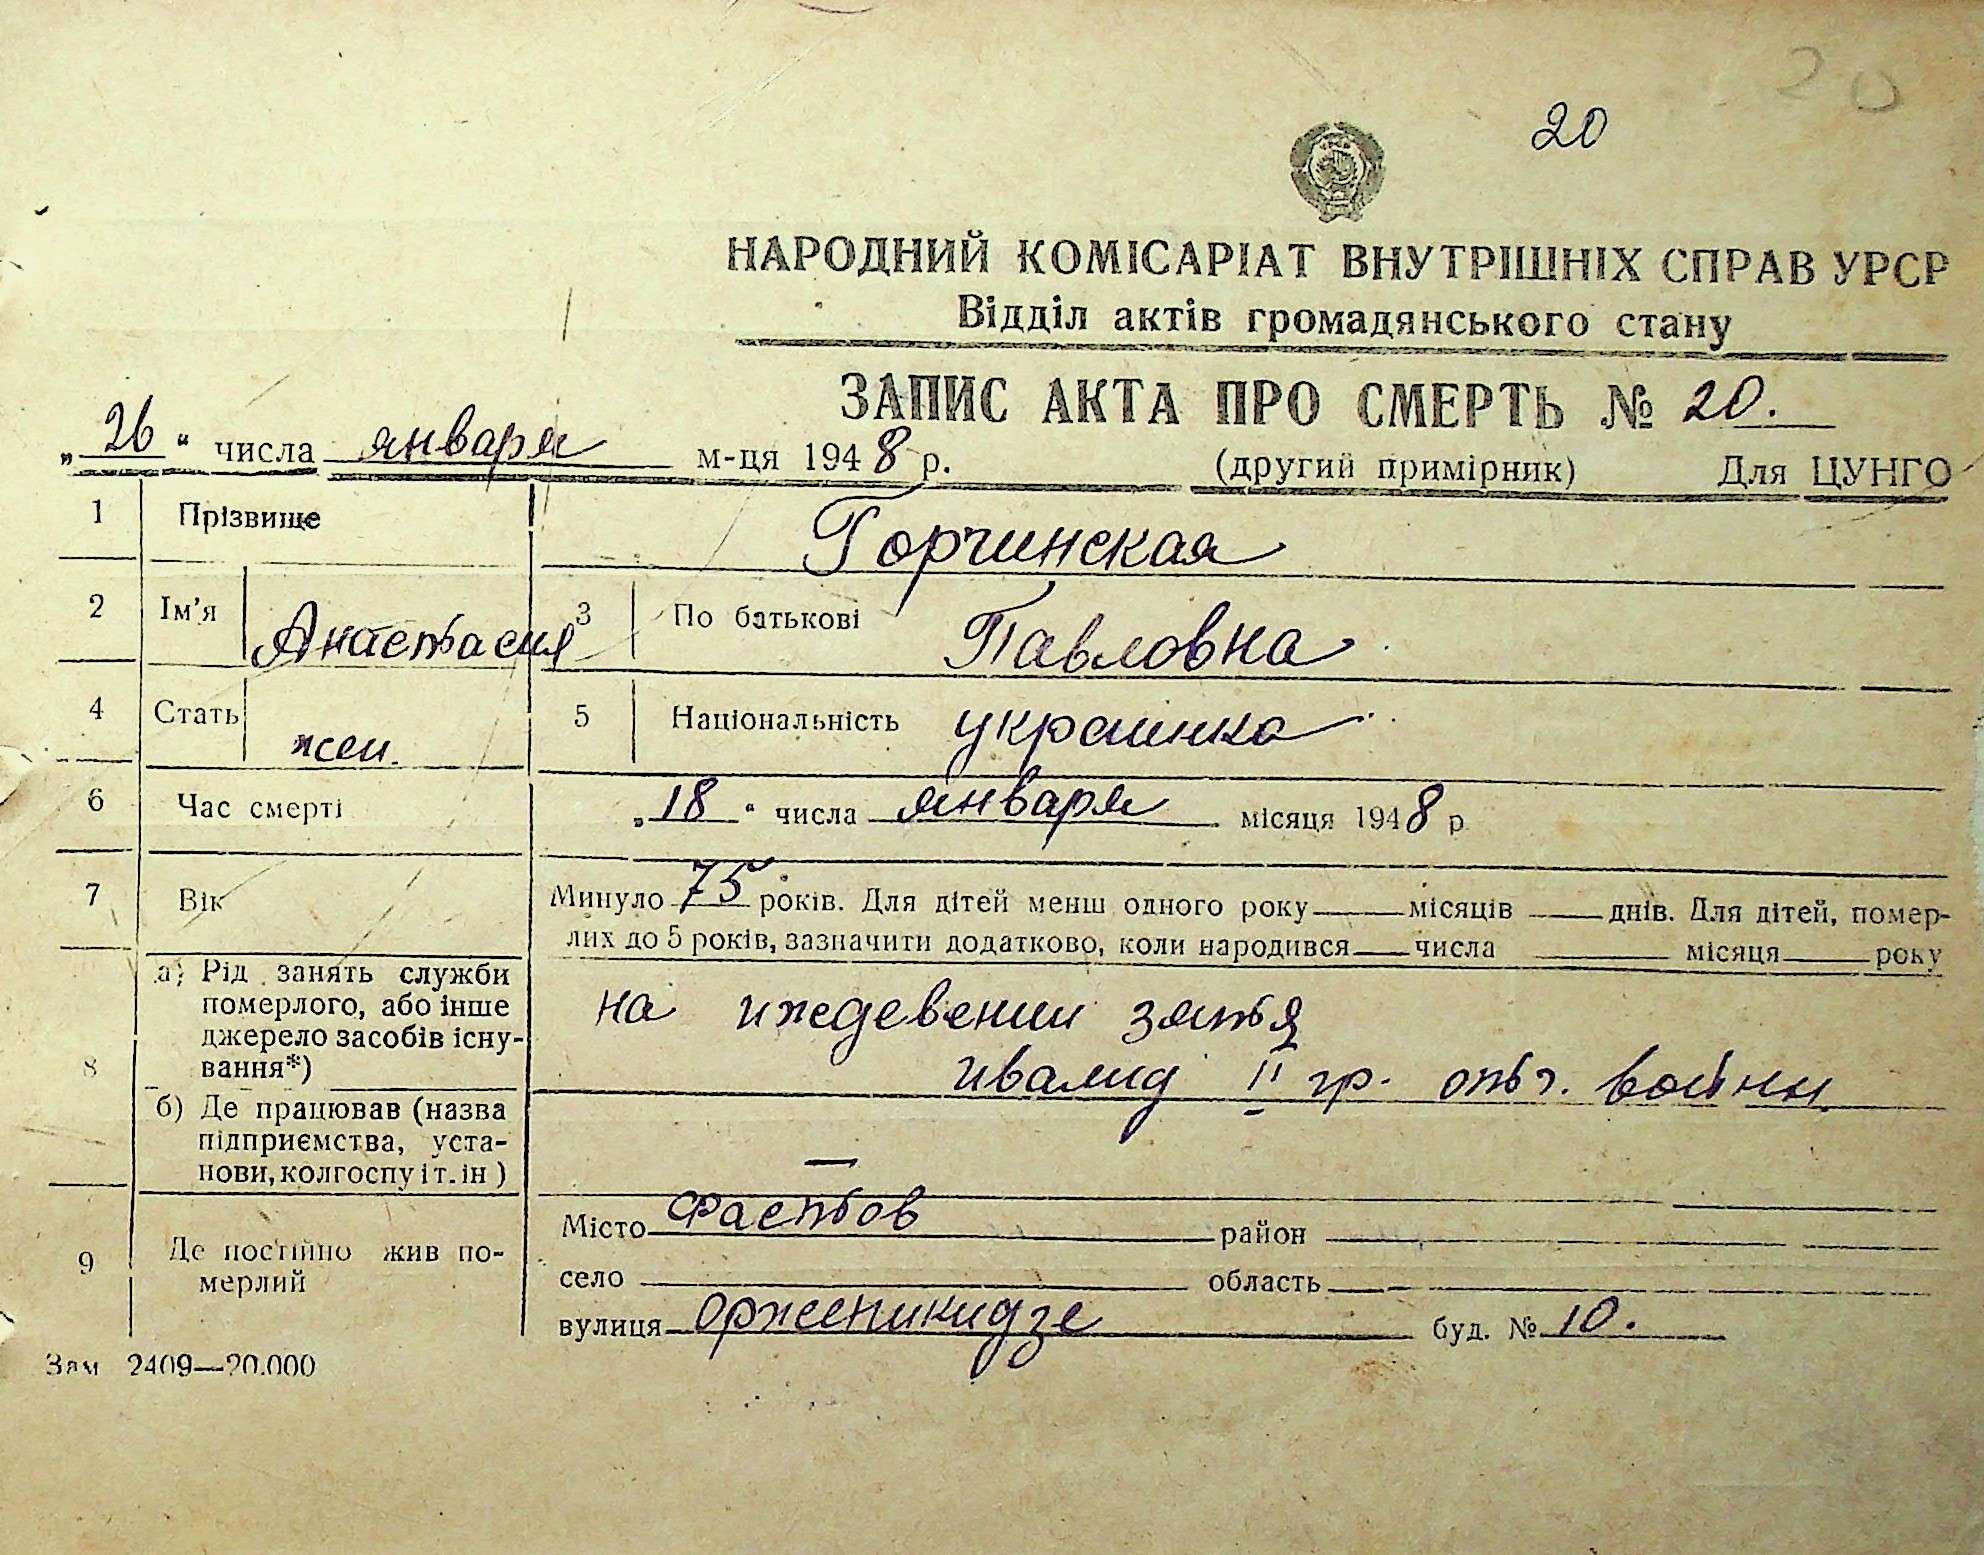 20
20
НАРОДНИЙ КОМІСАРІАТ ВНУТРІШНІХ СПРАВ УРСР
Відділ актів громадянського стану
ЗАПИС АКТА ПРО СМЕРТЬ № 20.
„26“ числа января м-ця 1948 р. (другий примірник) Для ЦУНГО
1 Прізвище Горчинская
2 Ім'я Анастасия 3 По батькові Павловна
4 Стать жен. 5 Національність украинка
6 Час смерті „18“ числа января місяця 1948 р
7 Вік Минуло 75 років. Для дітей менш одного року — місяців — днів. Для дітей, помер-
лих до 5 років, зазначити додатково, коли народився — числа — місяця — року
8 а) Рід занять служби
померлого, або інше
джерело засобів існу-
вання*)
на иждевении зятя
ивалид II гр. отеч. войны
б) Де працював (назва
підприємства, уста-
нови, колгоспу і т. ін)
—
9 Де постійно жив по-
мерлий
Місто Фастов район
село область
вулиця орженикидзе буд. № 10.
Зам 2409—20.000